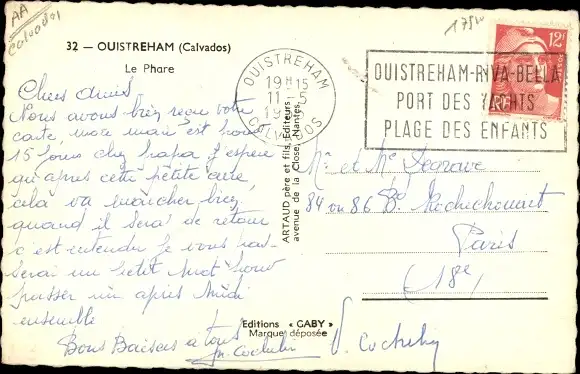 AA
Calvados
175W
32 — OUISTREHAM (Calvados)
Le Phare
OUISTREHAM
19H15
11-5
CALVADOS
12F
OUISTREHAM-RIVA-BELLA
PORT DES YACHTS
PLAGE DES ENFANTS
Chers amis
Nous avons bien reçu votre
carte, mon mari est pour
15 jours chez papa j'espère
qu'après cette petite cure,
cela va marcher bien
quand il sera de retour
c'est entendu je vous pas-
serai un petit mot pour
passer un après midi
ensemble
Bons Baisers a tous
ARTAUD père et fils, Éditeurs
avenue de la Close, Nantes
Mr et Me
84 ou 86 Bd Rochechouart
Paris
(18e)
Editions « GABY »
Marque déposée